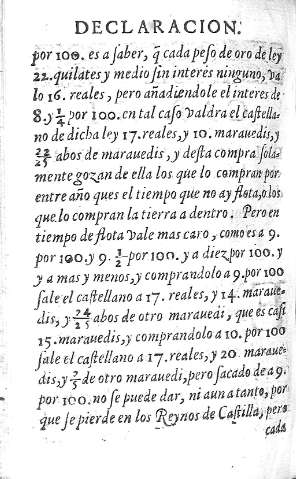 DECLARACION.
por 100. es a ſaber, q̃ cada peſo de oro de ley
22. quilates y medio ſin interes ninguno, va
lo 16. reales, pero añadiendole el interes de
8. y 1/4 por 100. en tal caſo valdra el caſtella-
no de dicha ley 17. reales, y 10. marauedis, y
22/25 abos de marauedis, y deſta compra ſola-
mente gozan de ella los que lo compran por
entre año ques el tiempo que no ay flota, o los
que lo compran la tierra a dentro. Pero en
tiempo de flota vale mas caro, como es a 9.
por 100. y 9. 1/2 por 100. y a diez por 100. y
y a mas y menos, y comprandolo a 9. por 100
ſale el caſtellano a 17. reales, y 14. maraue-
dis, y 24/25 abos de otro marauedi, que es caſi
15. marauedis, y comprandolo a 10. por 100
ſale el caſtellano a 17. reales, y 20 maraue-
dis, y 2/5 de otro marauedi, pero ſacado de a 9.
por 100. no ſe puede dar, ni aun a tanto, por
que ſe pierde en los Reynos de Caſtilla, pero
cada